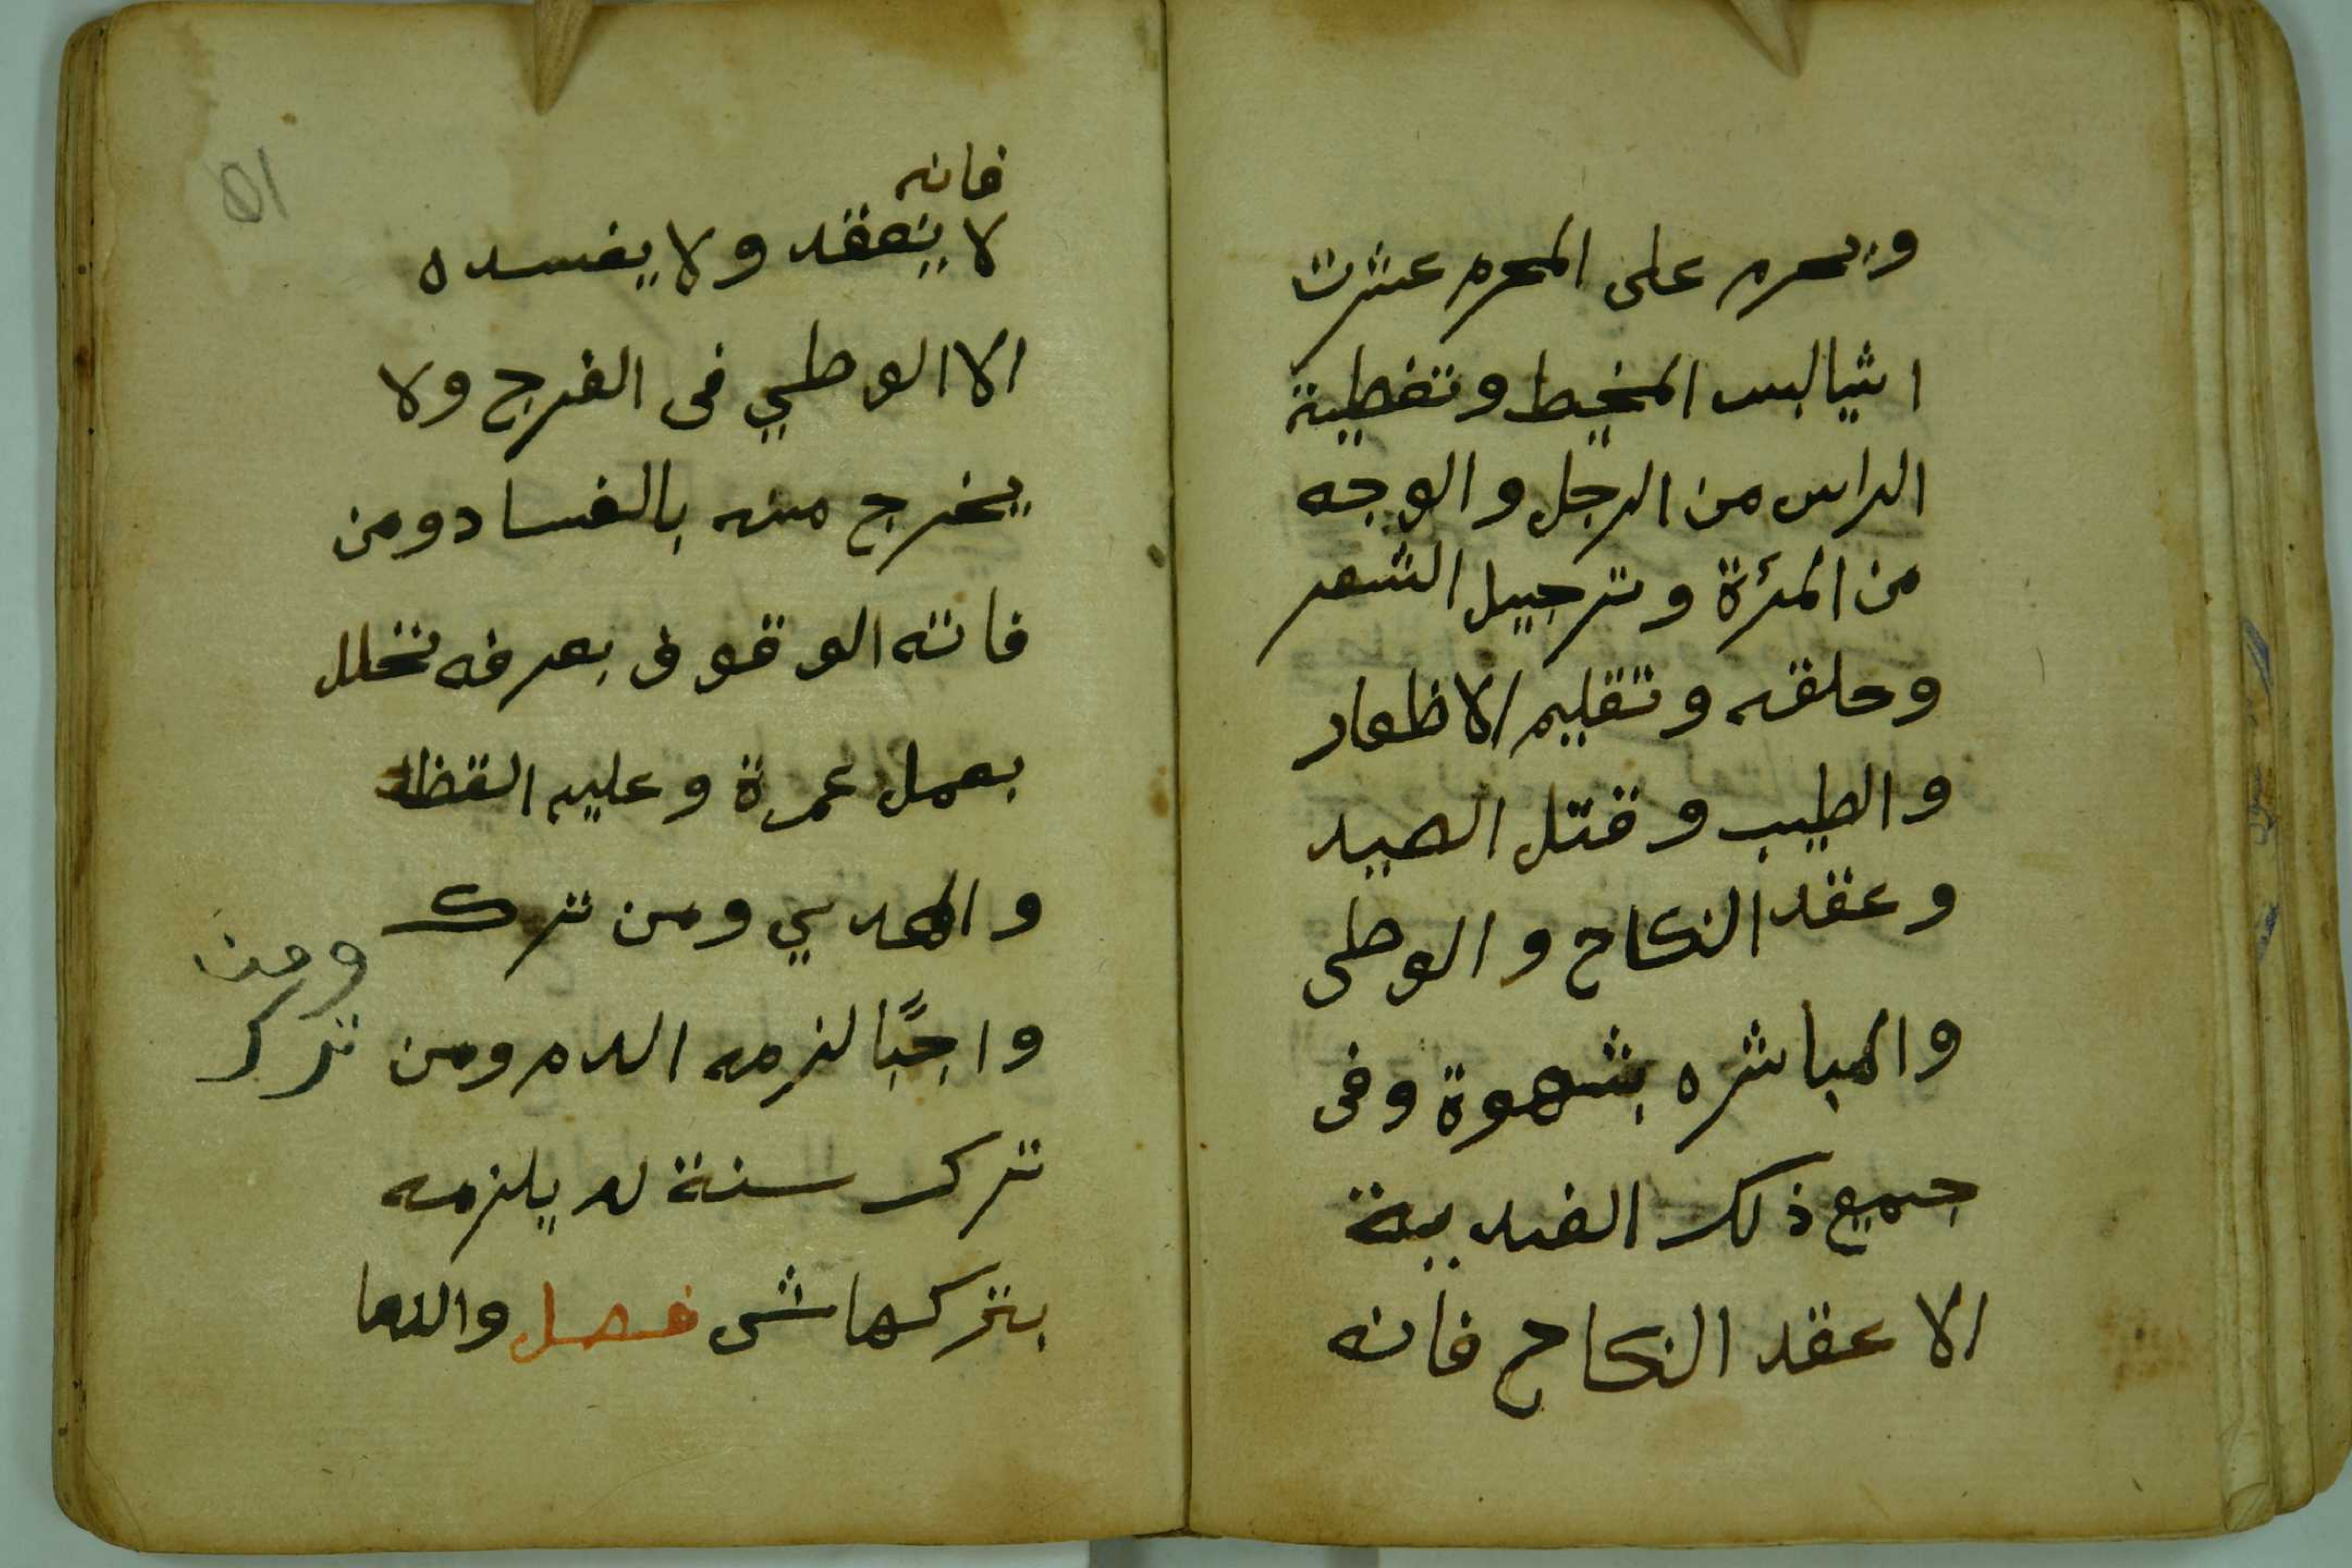 ويحرم على المحرم عشرت
اشيا لبس المخيط وتغطية
الراس من الرجل والوجه
من المرٔة وترجيل الشعر
وحلقه وتقليم الاظهار
والطيب وقتل الصيد
وعقد النكاح والوطى
والمباشره بشهوة وفى
جميع ذلك الفديية
الا عقد النكاح فانه
فانه
لا ينعقد ولا يفسده
الا الوطي فى الفرج ولا
يخرج منه بالفساد ومن
فاته الوقوف بعرفه تحلل
بعمل عمرة وعليه القظا
والهدي ومن ترك
واجبًا لزمه الدم ومن
ومن
ترك
ترك سنة لم يلزمه
بتركها شى فصل والدما